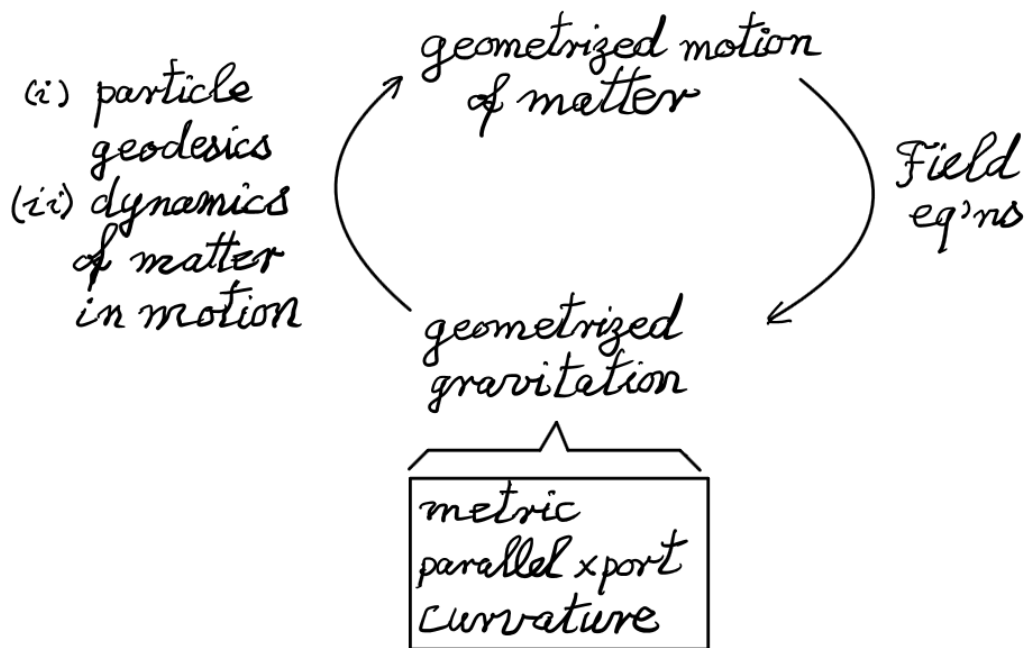 geometrized motion
of matter
(i) particle
geodesics
(ii) dynamics
of matter
in motion
Field
eq'ns
geometrized
gravitation
metric
parallel xport
curvature